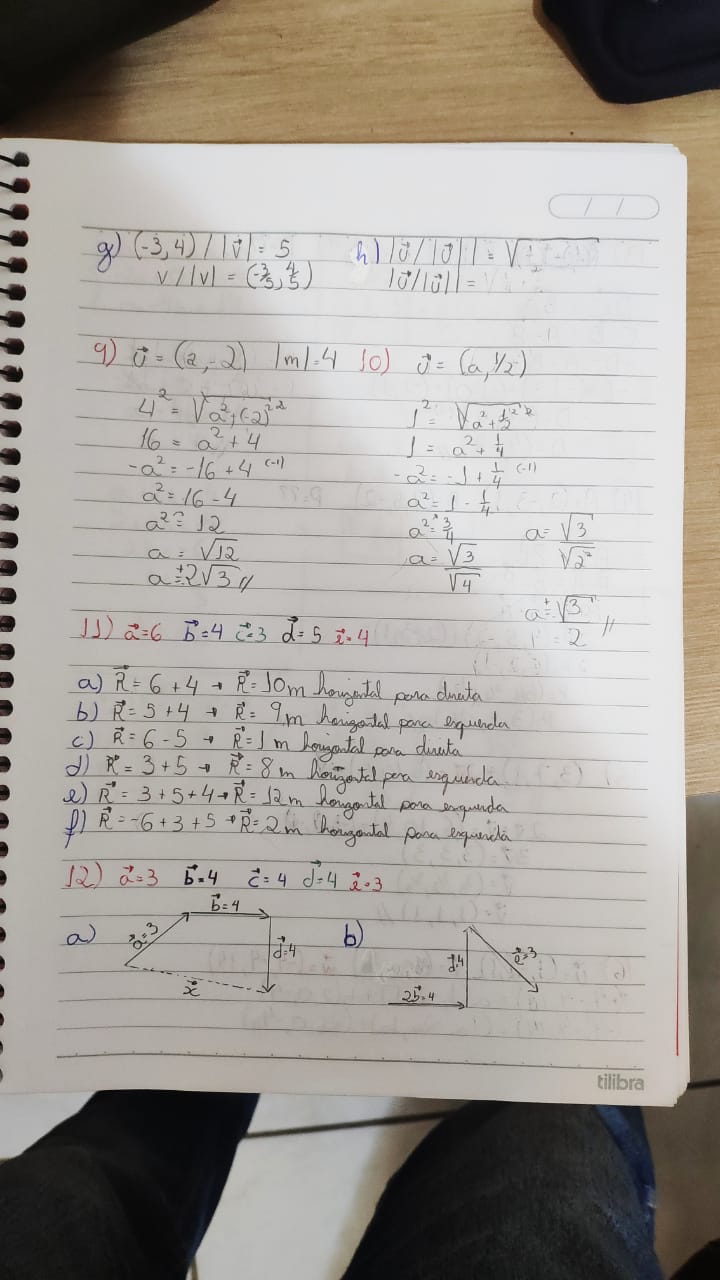 / /
g) (-3,4) / |v⃗| = 5
v/|v| = (-3/5, 4/5)
h) |u⃗/|u⃗|| = √
|u⃗/|u⃗|| =
9) u⃗ = (a,-2) |m|=4
4² = √a²+(-2)²²
16 = a² + 4
-a² = -16 + 4 (-1)
a² = 16 - 4
a² = 12
a = √12
a = ±2√3 //
10) u⃗ = (a, 1/2)
1² = √a² + 1/2² ²
1 = a² + 1/4
-a² = -1 + 1/4 (-1)
a² = 1 - 1/4
a² = 3/4
a = √3/√4
a = √3/√2²
a = ±√3/2 //
11) a⃗=6 b⃗=4 c⃗=3 d⃗=5 e⃗=4
a) R⃗ = 6 + 4 → R⃗ = 10m horizontal para direita
b) R⃗ = 5 + 4 → R⃗ = 9m horizontal para esquerda
c) R⃗ = 6 - 5 → R⃗ = 1m horizontal para direita
d) R⃗ = 3 + 5 → R⃗ = 8m horizontal para esquerda
e) R⃗ = 3 + 5 + 4 → R⃗ = 12m horizontal para esquerda
f) R⃗ = -6 + 3 + 5 → R⃗ = 2m horizontal para esquerda
12) a⃗=3 b⃗=4 c⃗=4 d⃗=4 e⃗=3
a) a⃗=3 b⃗=4 d⃗=4
x⃗
b) d⃗=4 e⃗=3
2b⃗=4
tilibra